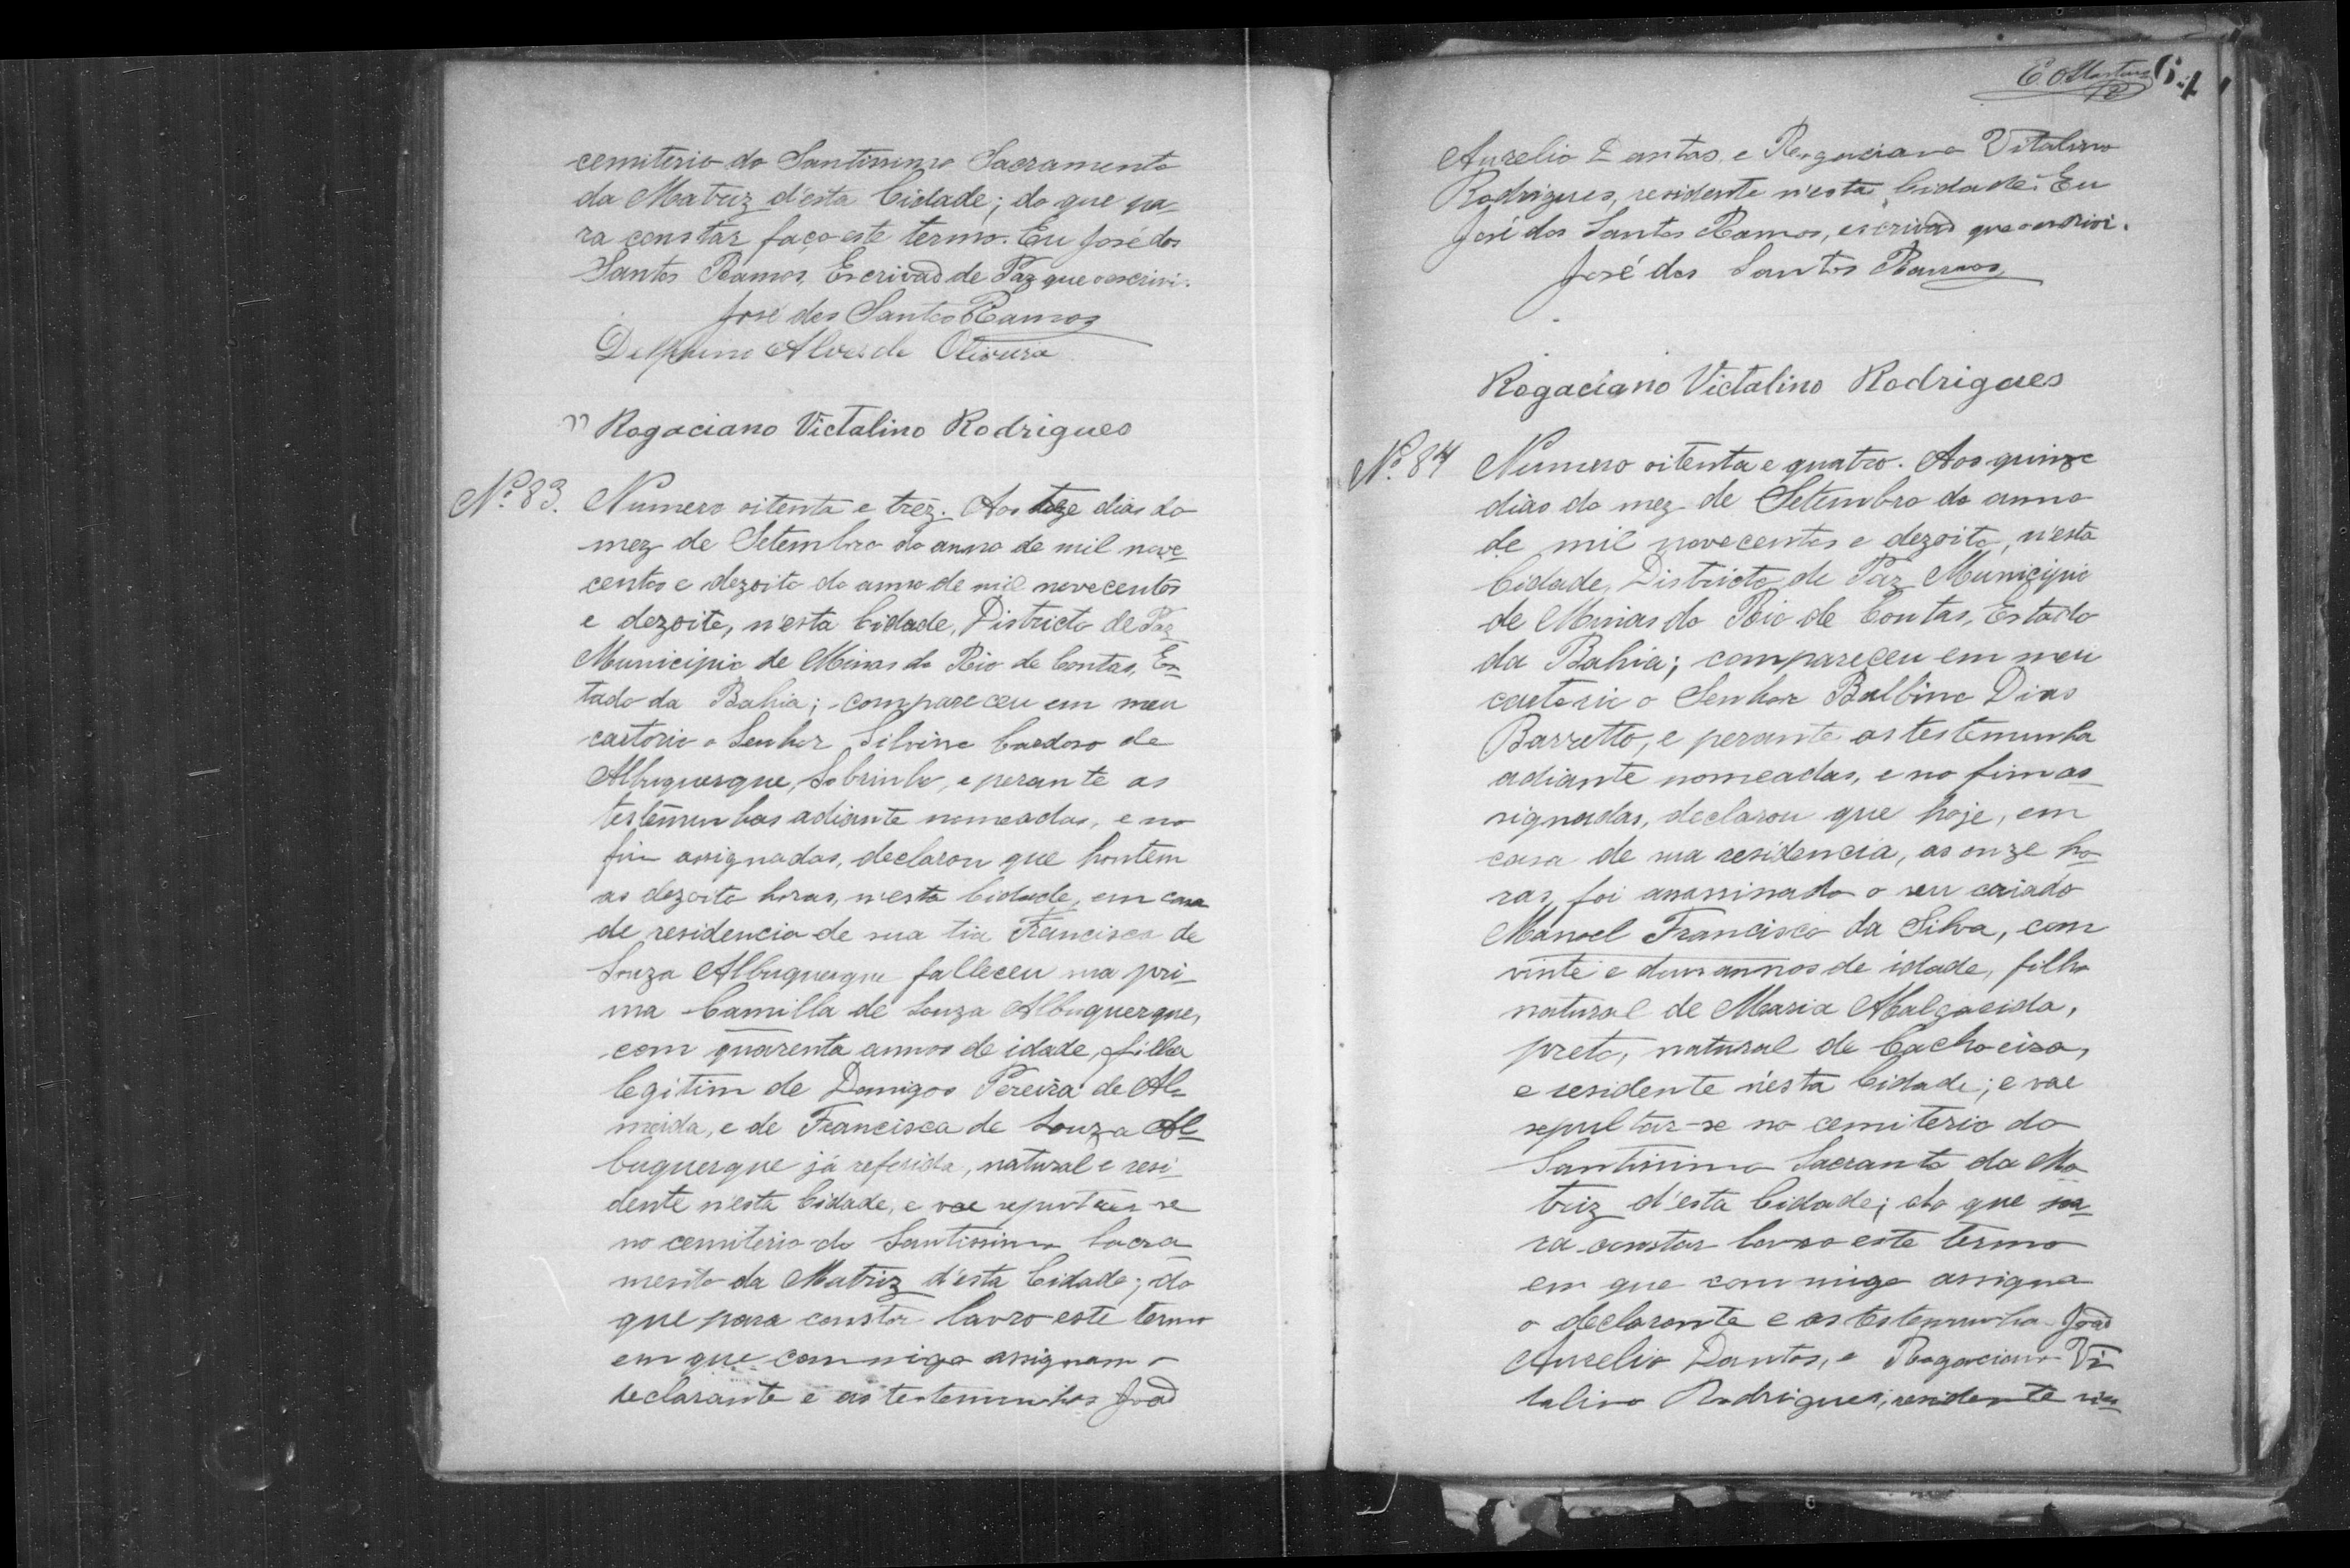 cemiterio do Santissimo Sacramento
da Matriz d'esta Cidade; do que pa-
ra constar faço este termo. Eu José dos
Santos Ramos, Escrivaõ de Paz que o escrivi.
José dos Santos Ramos
Delphino Alves de Oliveira
Rogaciano Victalino Rodrigues
Nº 83. Numero oitenta e trez. Aos treze dias do
mez de Setembro do anno de mil nove-
centos e dezoito do anno de mil novecentos
e dezoito, n'esta Cidade, Districto de Paz
Municipio de Minas do Rio de Contas, Es-
tado da Bahia; compareceu em meu
cartorio o Senhor Silvino Cardoso de
Albuquerque, Sobrinho, e perante as
testemunhas adiante nomeadas, e no
fim assignadas, declarou que hontem
as dezoito horas, n'esta Cidade, em casa
de residencia de sua tia Francisca de
Souza Albuquerque falleceu sua pri-
ma Camilla de Souza Albuquerque,
com quarenta annos de idade, filha
legitim de Domigos Pereira de Al-
meida, e de Francisca de Souza Al-
buquerque já referida, natural e resi-
dente n'esta Cidade, e vae sepultar se
no cemiterio do Santissimo Sacra
mento da Matriz d'esta Cidade; do
que para constar lavro este termo
em que commigo assignam o
declarante e as testemunhas Joaõ
64
Aurelio Dantas, e Rogaciano Vitalino
Rodrigues, residente n'esta Cidade. Eu
José dos Santos Ramos, escrivaõ que o escrivi.
José dos Santos Ramos
Rogaciano Victalino Rodrigues
Nº 84 Numero oitenta e quatro. Aos quinze
dias do mez de Setembro do anno
de mil novecentos e dezoito, n'esta
Cidade, Districto de Paz Municipio
de Minas do Rio de Contas, Estado
da Bahia; compareceu em meu
cartorio o Senhor Balbino Dias
Barretto, e perante as testemunha
adiante nomeadas, e no fim as-
signadas, declarou que hoje, em
casa de sua residencia, as onze ho-
ras, foi assassinado o seu criado
Manoel Francisco da Silva, com
vinte e dous annos de idade, filho
natural de Maria
preto, natural de Cachoeira,
e residente n'esta Cidade; e vae
sepultar-se no cemiterio do
Santissimo Sacranto da Ma-
triz d'esta Cidade; do que pa-
ra constar lavro este termo
em que commigo assigna
o declarante e as testemunha Joaõ
Aurelio Dantas, e Rogaciano Vi-
talino Rodrigues, residente nes-